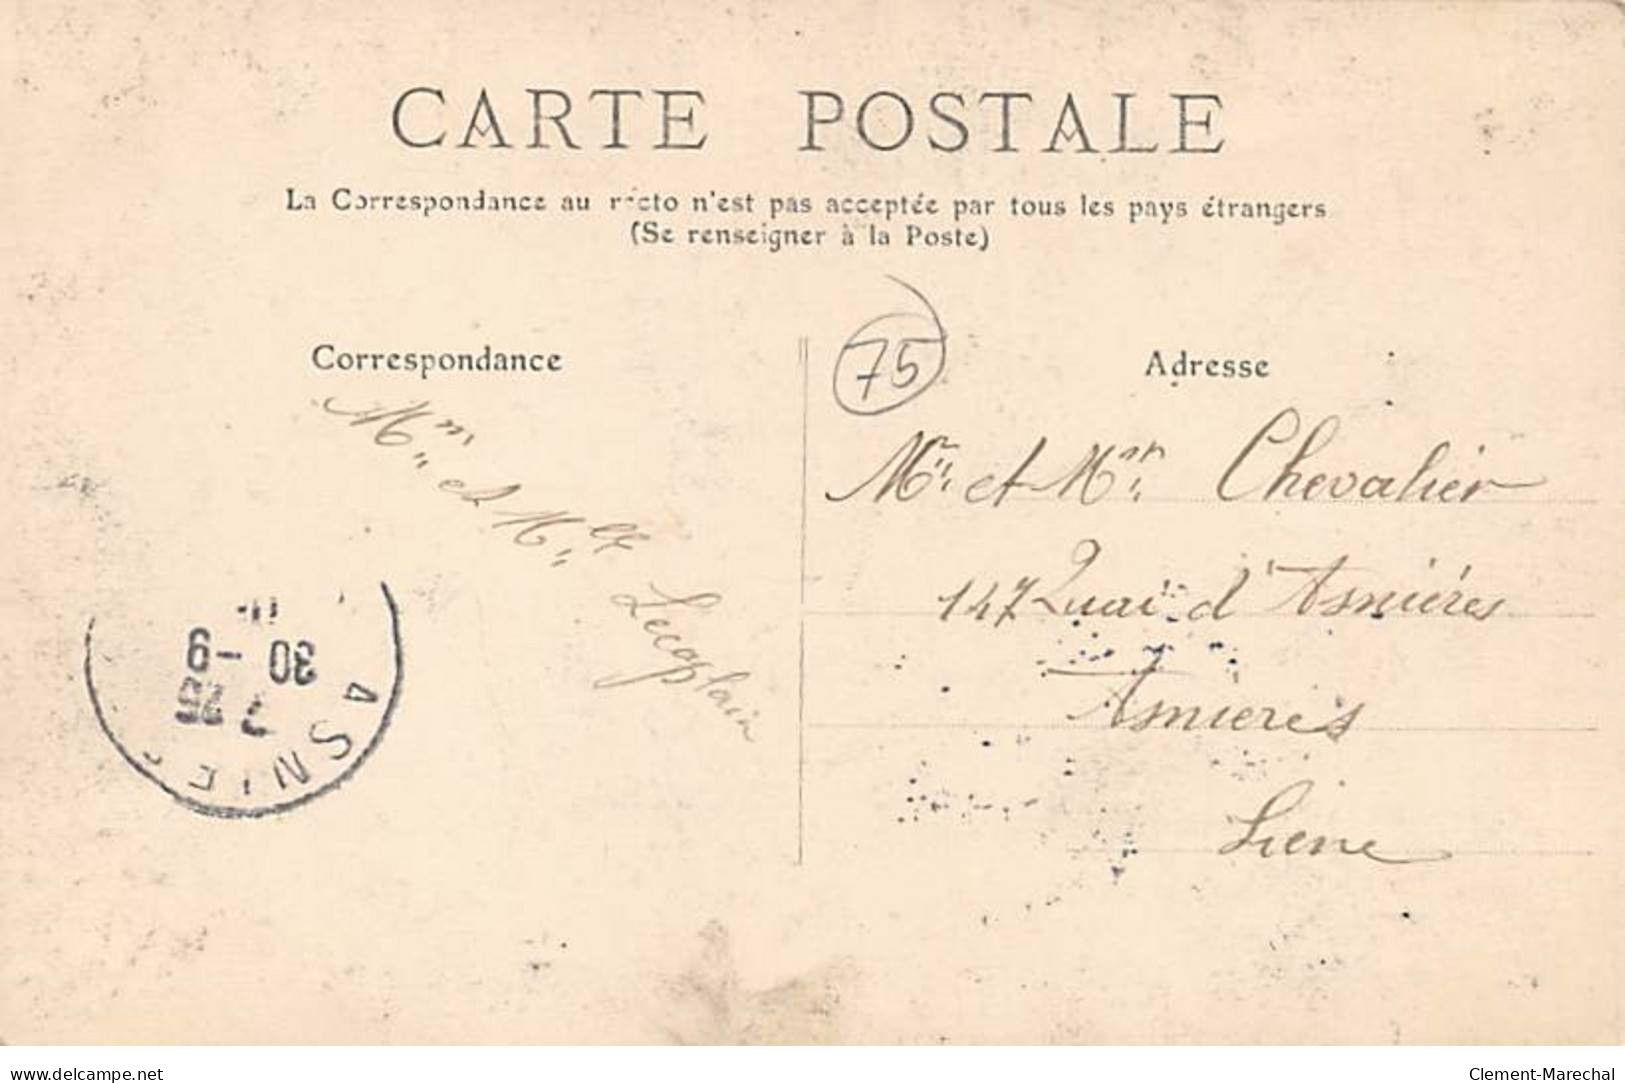 CARTE POSTALE
La Correspondance au recto n'est pas acceptée par tous les pays étrangers
(Se renseigner à la Poste)
Correspondance
75
Adresse
Mm et Mlles
Lecaplain
Mr et Mme Chevalier
147 Quai d'Asnières
Asnieres
Seine
30 -9
ASNIE
www.delcampe.net
Clement-Marechal